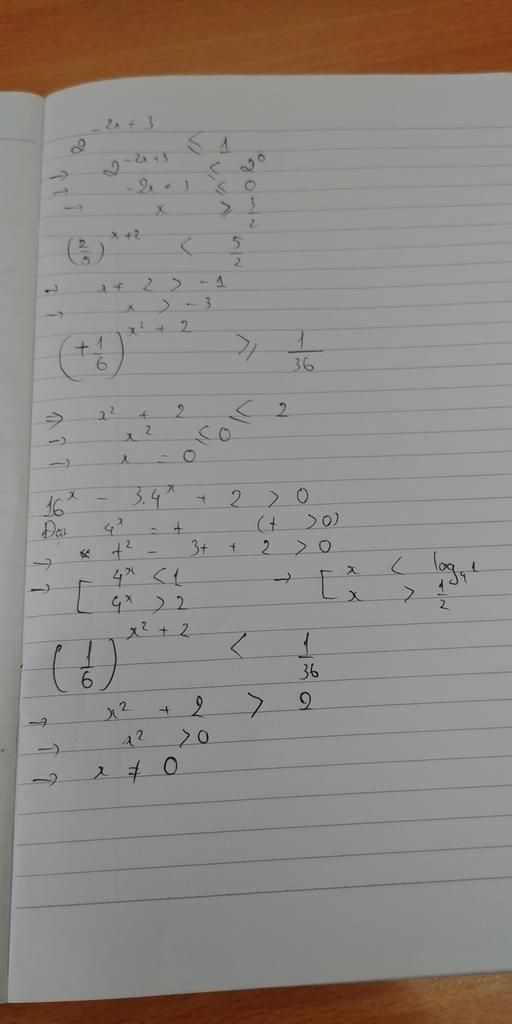 2^{-2x+3} ≤ 1
→ 2^{-2x+3} ≤ 2^0
→ -2x + 3 ≤ 0
→ x ≥ 3/2
(2/5)^{x+2} < 5/2
→ x + 2 > -1
→ x > -3
(+1/6)^{x² + 2} ≥ 1/36
⇒ x² + 2 ≤ 2
→ x² ≤ 0
→ x = 0
16^x - 3.4^x + 2 > 0
4^x = t (t > 0)
→ t² - 3t + 2 > 0
→ [ 4^x < 1 → [ x < log_4 1
4^x > 2 x > 1/2
(1/6)^{x² + 2} < 1/36
→ x² + 2 > 2
→ x² > 0
→ x ≠ 0